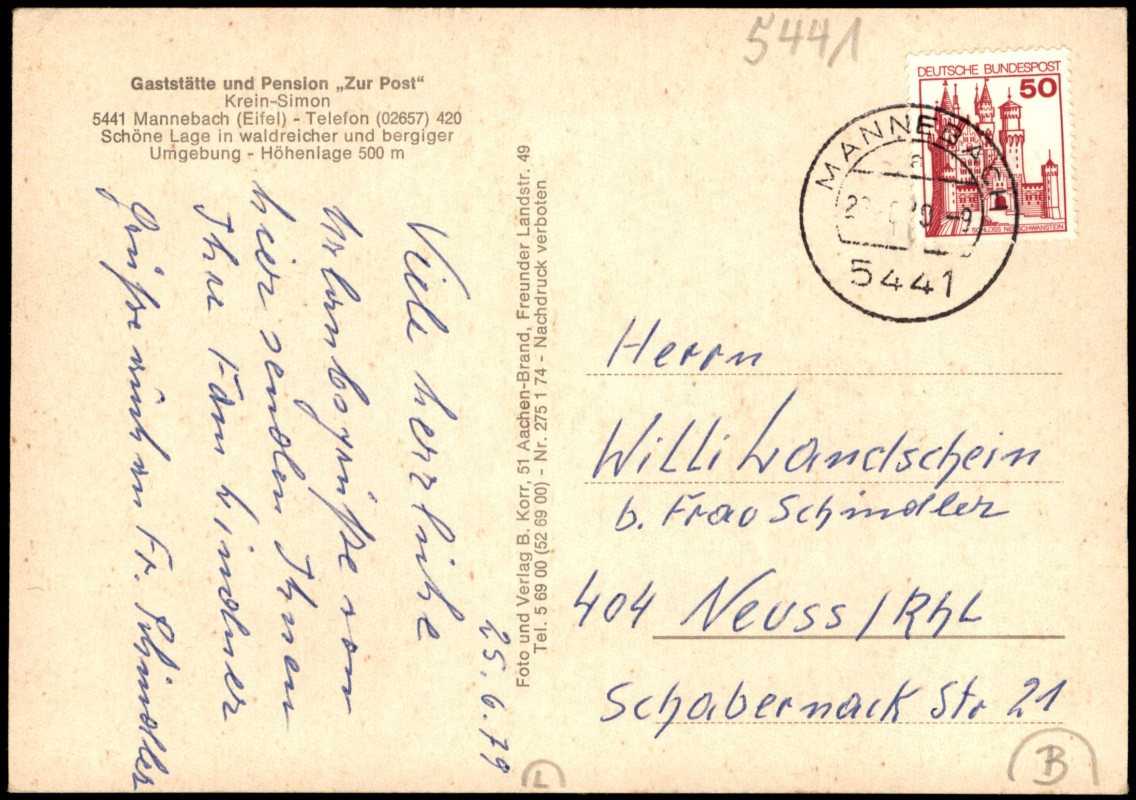 5441
Gaststätte und Pension „Zur Post“
Krein-Simon
5441 Mannebach (Eifel) - Telefon (02657) 420
Schöne Lage in waldreicher und bergiger
Umgebung - Höhenlage 500 m
DEUTSCHE BUNDESPOST
50
SCHLOSS NEUSCHWANSTEIN
MANNEBACH
a
-9
5441
25.6.79
Viele herzliche
Urlaubsgrüße von
hier senden Ihnen
Ihre Fam.
Grüße auch an Fr. Schindler
Foto und Verlag B. Korr, 51 Aachen-Brand, Freunder Landstr. 49
Tel. 5 69 00 (52 69 00) - Nr. 275 1 74 - Nachdruck verboten
Herrn
Willi Landschein
b. Frau Schindler
404 Neuss/Rhl
Schabernack Str 21
L
B